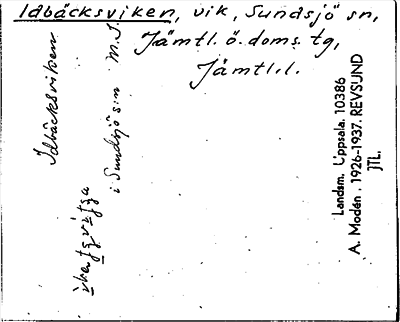 Idbäcksviken, vik, Sundsjö sn,
Jämtl. ö. doms. tg,
Jämtl. l.
Idbäcksviken
i Sundsjö s:n M. J.
Landsm. Uppsala. 10386
A. Modén. 1926-1937. REVSUND
JTL.